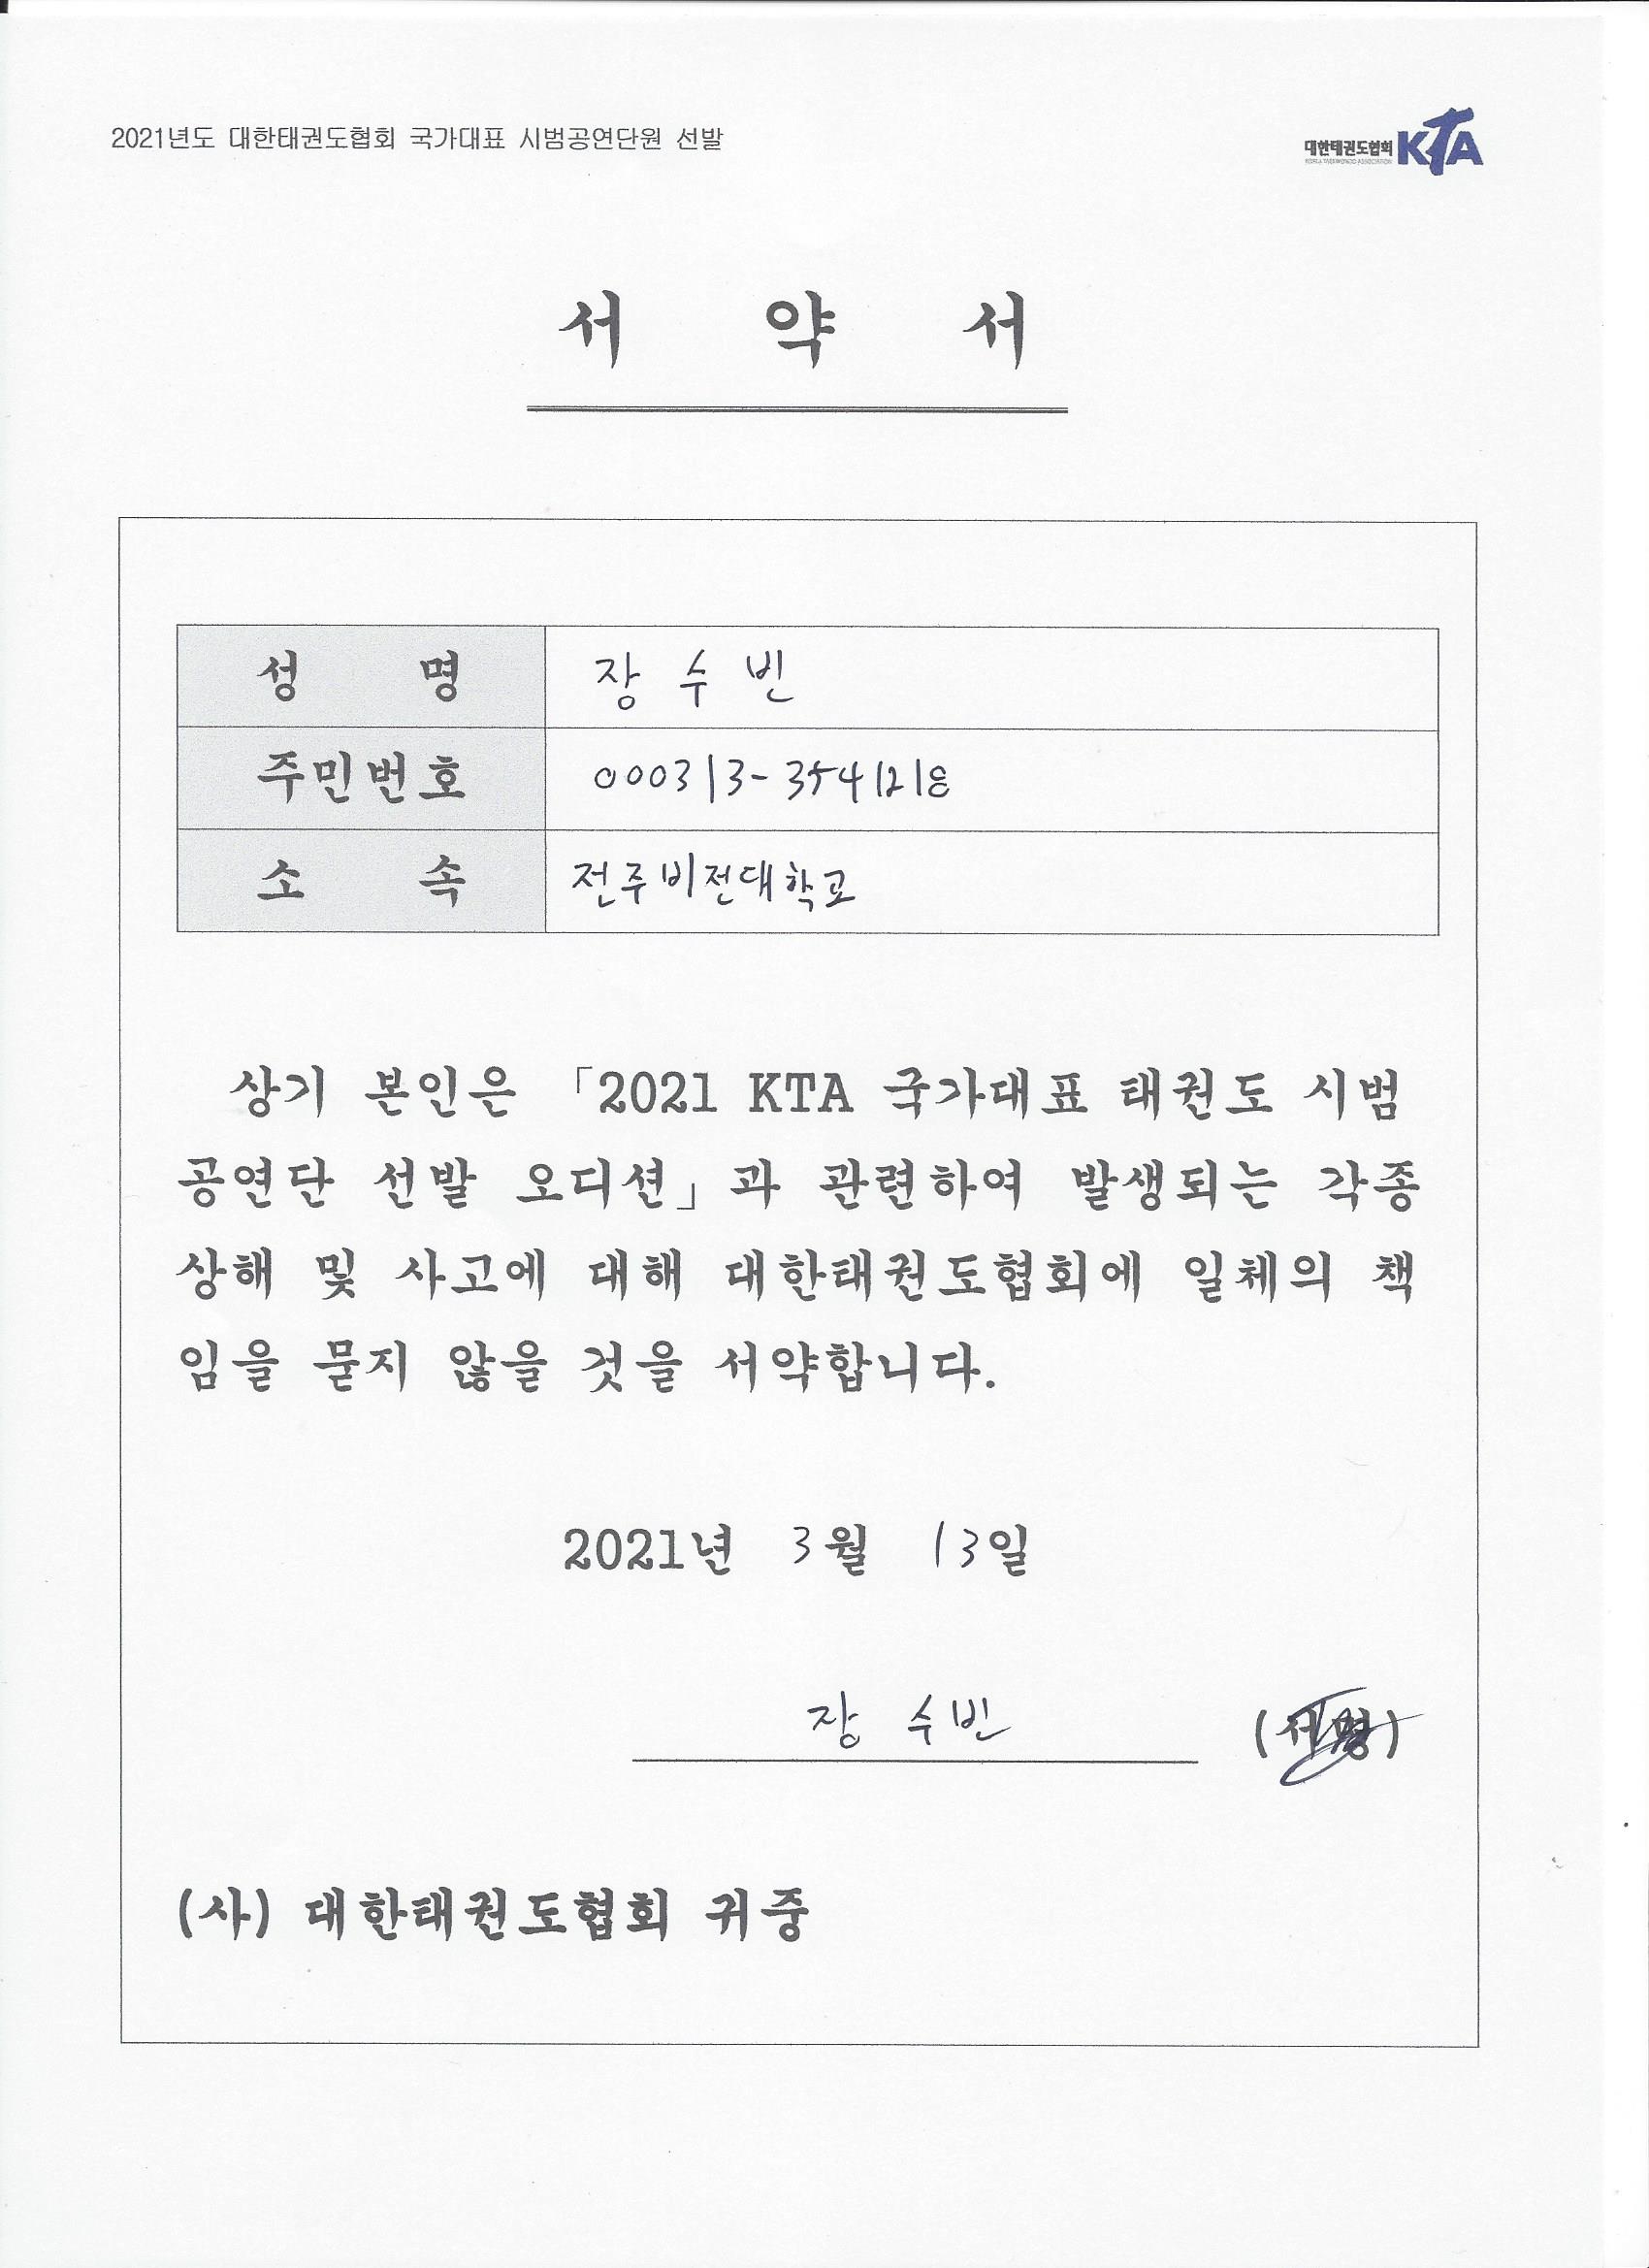 2021년도 대한태권도협회 국가대표 시범공연단원 선발
대한태권도협회 KTA
KOREA TAEKWONDO ASSOCIATION
서 약 서
성 명 장 수 빈
주민번호 000313-3541218
소 속 전주비전대학교
상기 본인은 「2021 KTA 국가대표 태권도 시범
공연단 선발 오디션」과 관련하여 발생되는 각종
상해 및 사고에 대해 대한태권도협회에 일체의 책
임을 묻지 않을 것을 서약합니다.
2021년 3월 13일
장 수빈 (서명)
(사) 대한태권도협회 귀중